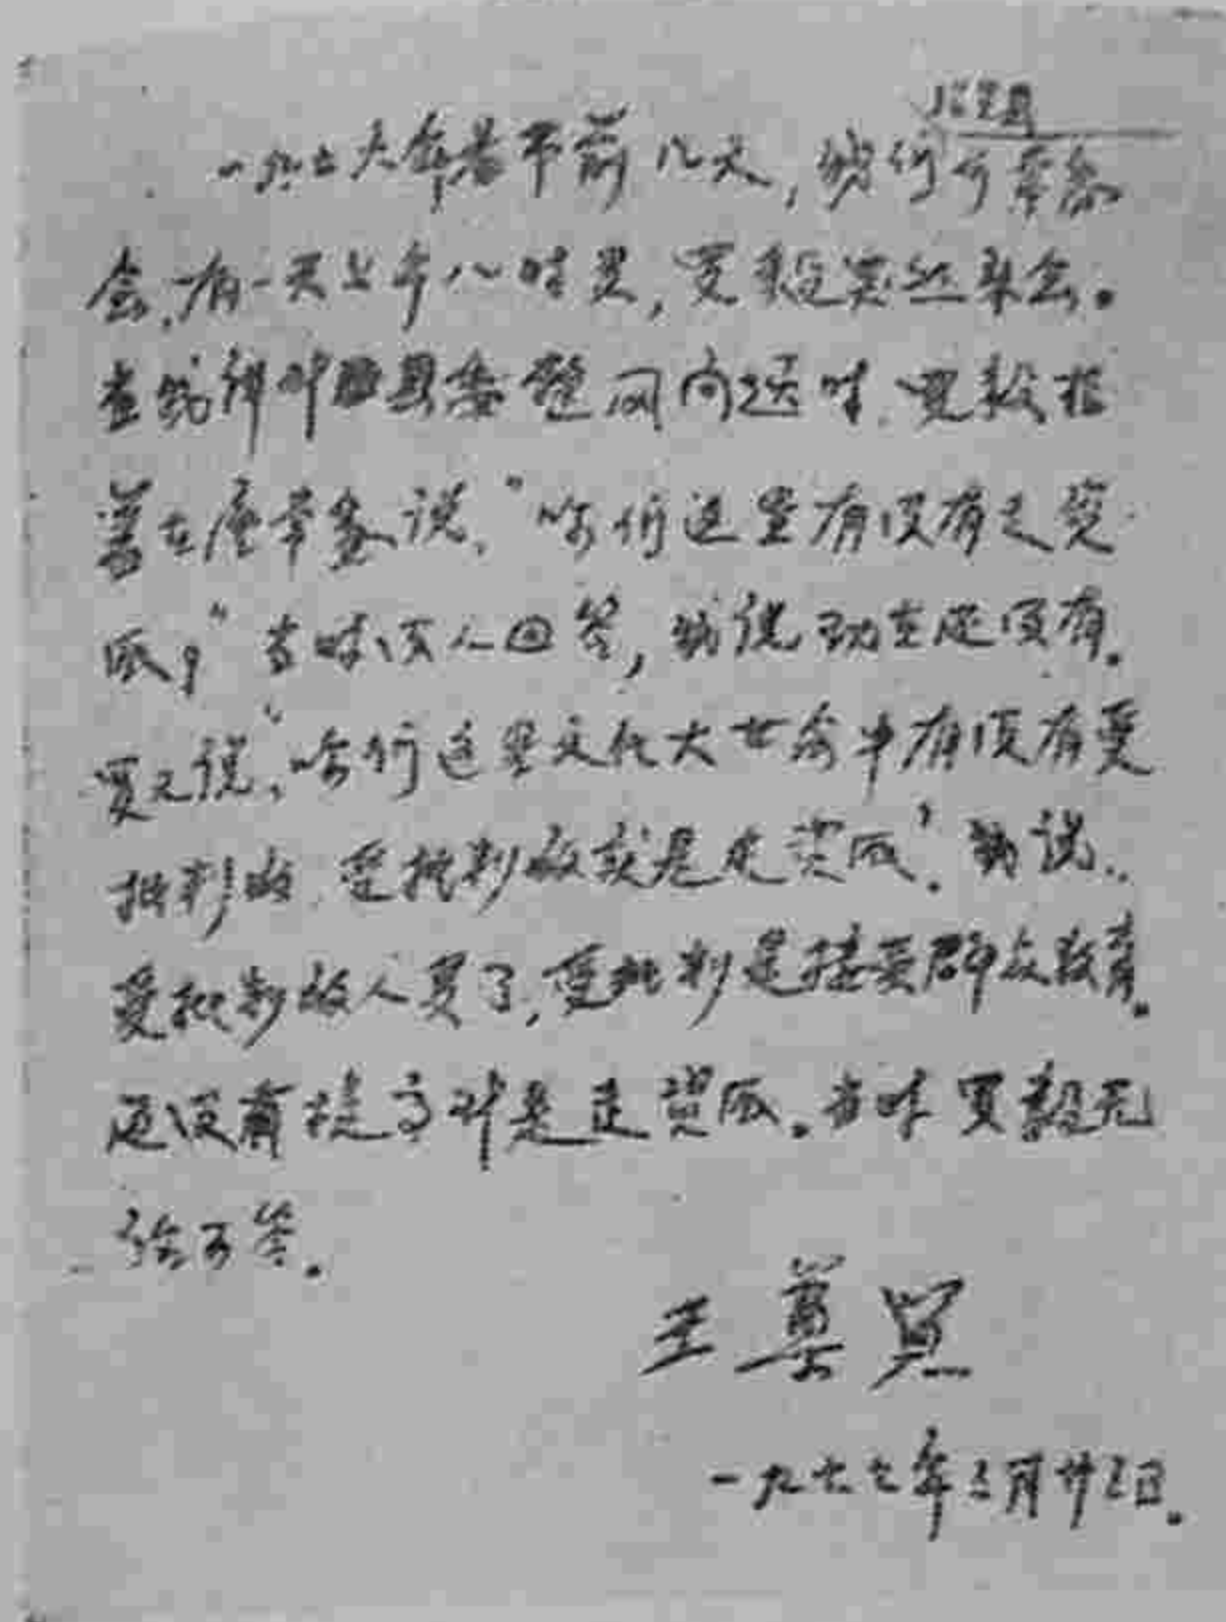 一九七六年春节前几天，我们开常委
会，有一天上午八时里，贾毅突然来会。
当我们县委整风问题时，贾毅指
着在座常委说，“你们这里有没有走资
派？”当时没人回答，我说现在还没有。
贾又说，“你们这里文化大革命中有没有受
批判的，受批判的就是走资派”。我说：
受批判的人多了，受批判是接受群众教育。
还没有提高到是走资派。当时贾毅无
话可答。
王尊贤
一九七七年三月廿三日。